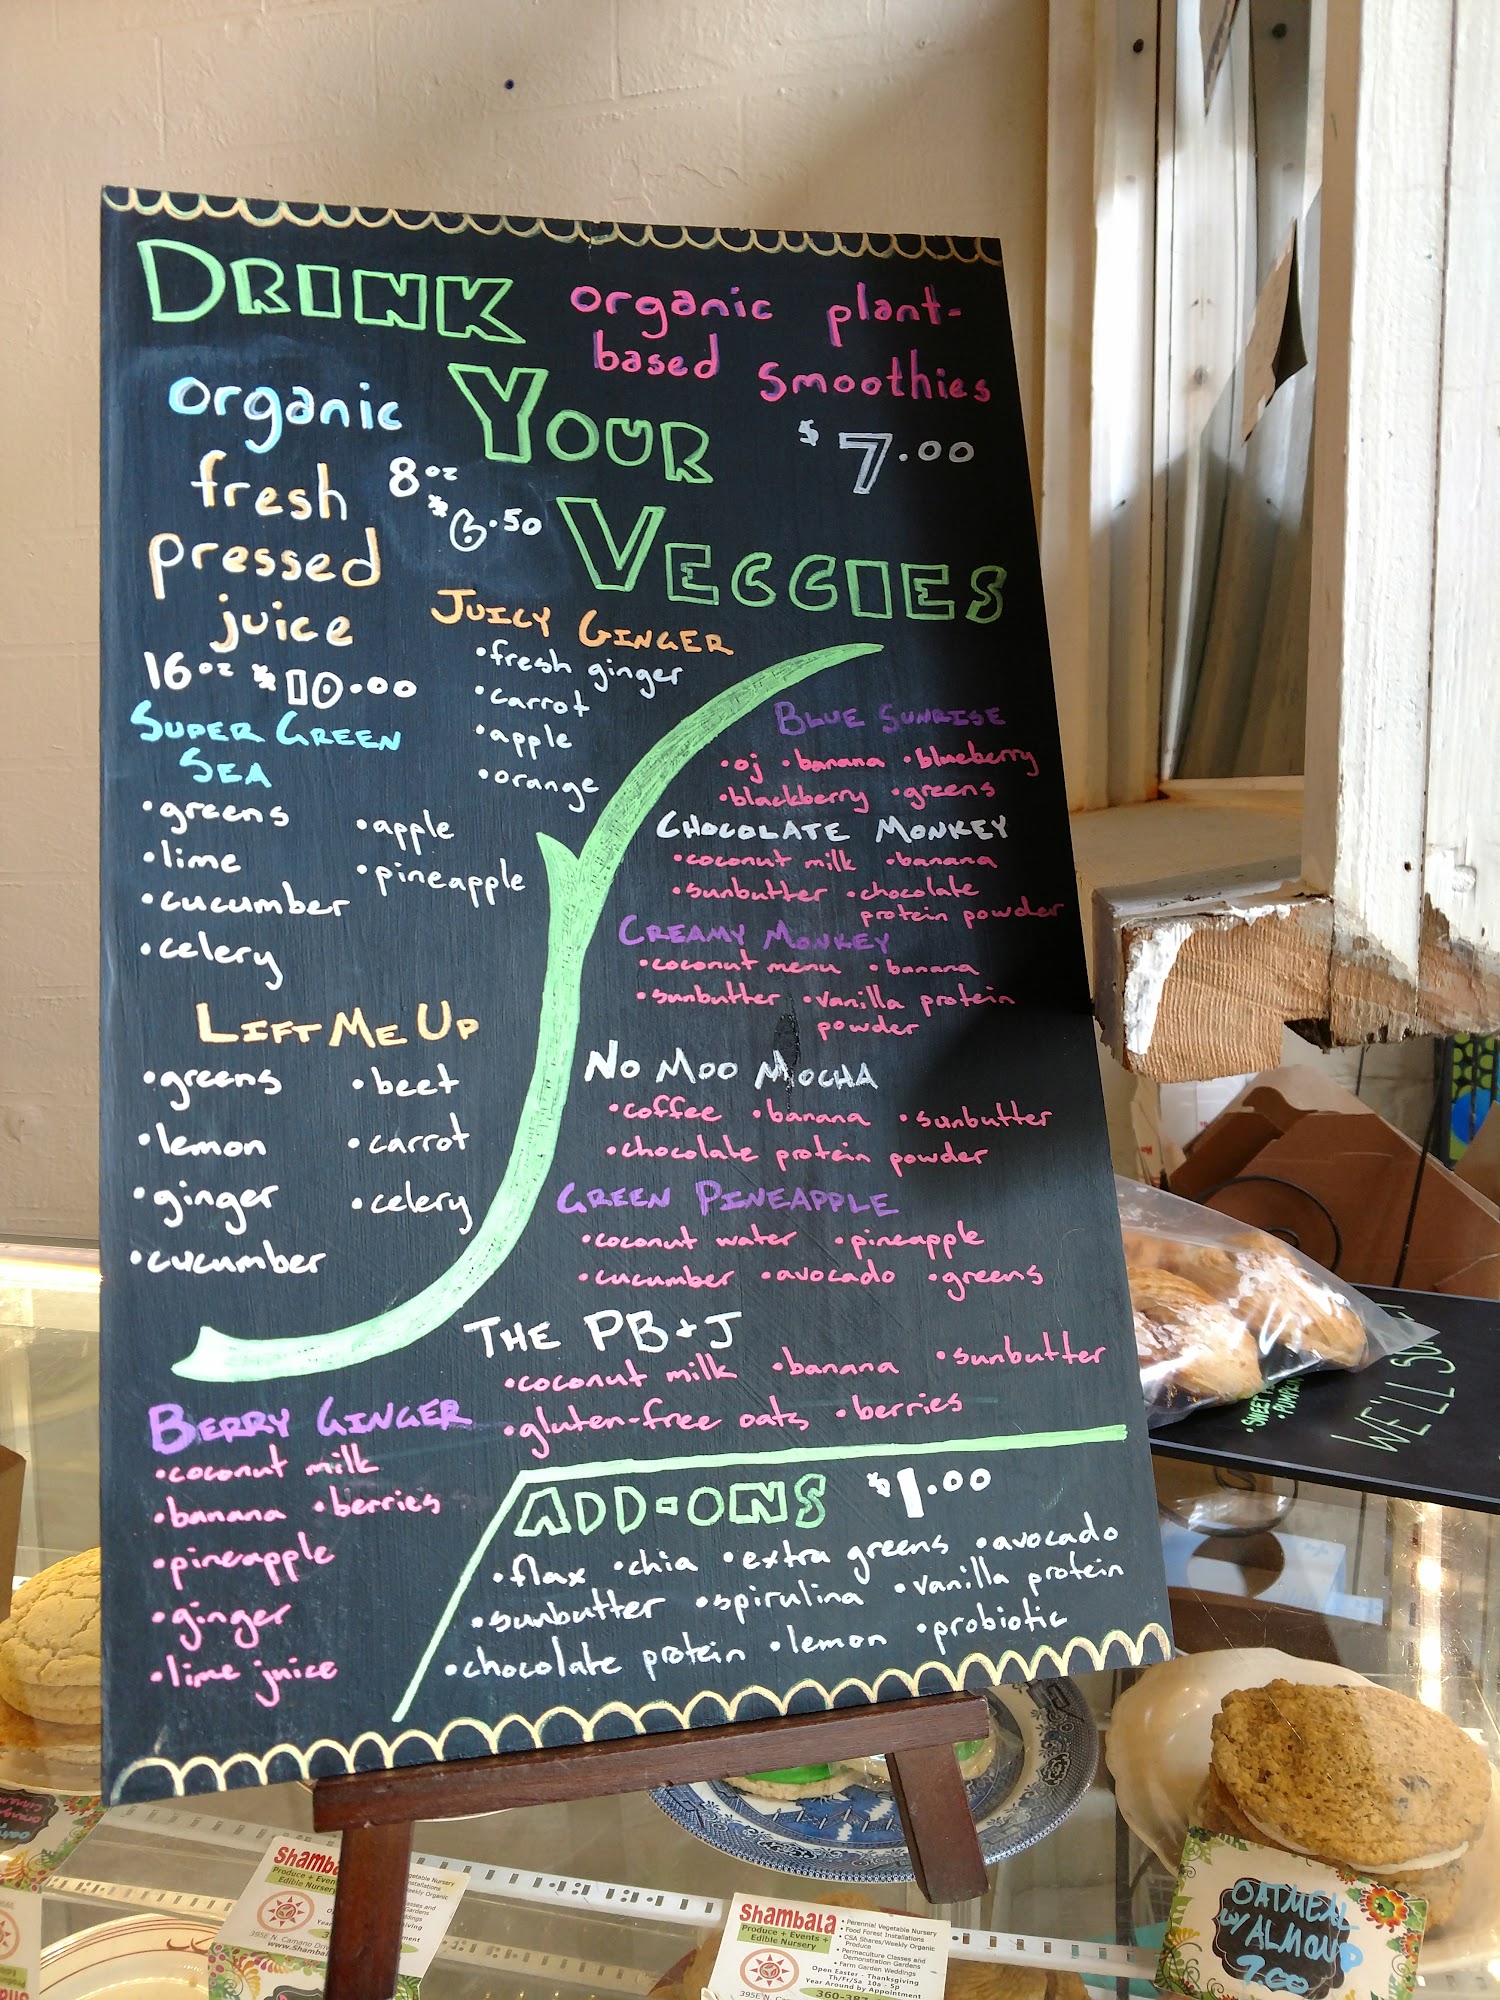 DRINK
YOUR
VEGGIES
organic
fresh
pressed
juice
8oz
$6.50
16oz $10.00
organic plant-
based smoothies
$7.00
JUICY GINGER
•fresh ginger
•carrot
•apple
•orange
SUPER GREEN
SEA
•greens •apple
•lime •pineapple
•cucumber
•celery
LIFT ME UP
•greens •beet
•lemon •carrot
•ginger •celery
•cucumber
BLUE SUNRISE
•oj •banana •blueberry
•blackberry •greens
CHOCOLATE MONKEY
•coconut milk •banana
•sunbutter •chocolate
protein powder
CREAMY MONKEY
•coconut menu •banana
•sunbutter •vanilla protein
powder
NO MOO MOCHA
•coffee •banana •sunbutter
•chocolate protein powder
GREEN PINEAPPLE
•coconut water •pineapple
•cucumber •avocado •greens
THE PB+J
•coconut milk •banana •sunbutter
•gluten-free oats •berries
BERRY GINGER
•coconut milk
•banana •berries
•pineapple
•ginger
•lime juice
ADD-ONS $1.00
•flax •chia •extra greens •avocado
•sunbutter •spirulina •vanilla protein
•chocolate protein •lemon •probiotic
•SWEET
•PUMPKIN
WE'LL
Produce + Events +
Edible Nursery
395E N. Camano
Shambala
Produce + Events +
Edible Nursery
• Perennial Vegetable Nursery
• Food Forest Installations
• CSA Shares/Weekly Organic
Produce
• Permaculture Classes and
Demonstration Gardens
• Farm Garden Weddings
Open Easter - Thanksgiving
Th/Fr/Sa 10a - 5p
Year Around by Appointment
395E N.
360-387
OATMEAL
w/ALMOND